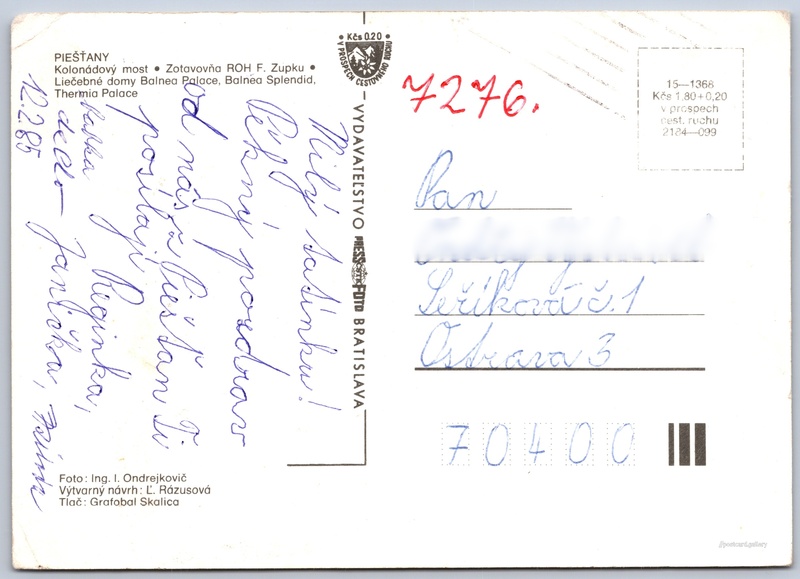 PIEŠŤANY
Kolonádový most • Zotavovňa ROH F. Zupku •
Liečebné domy Balnea Palace, Balnea Splendid,
Thermia Palace
• Kčs 0.20 •
V PROSPECH CESTOVNÉHO RUCHU
VYDAVATEĽSTVO PRESSFOTO BRATISLAVA
7276.
15—1368
Kčs 1,80+0,20
v prospech
cest. ruchu
2184—099
Milý tatínku!
Pěkný pozdrav
od nás z Piešťan Ti
posílají Reginka,
babka
dedo Janička,
12.2.85
Pan
Šeříková č. 1
Ostrava 3
70400
Foto: Ing. I. Ondrejkovič
Výtvarný návrh: Ľ. Rázusová
Tlač: Grafobal Skalica
postcard.gallery